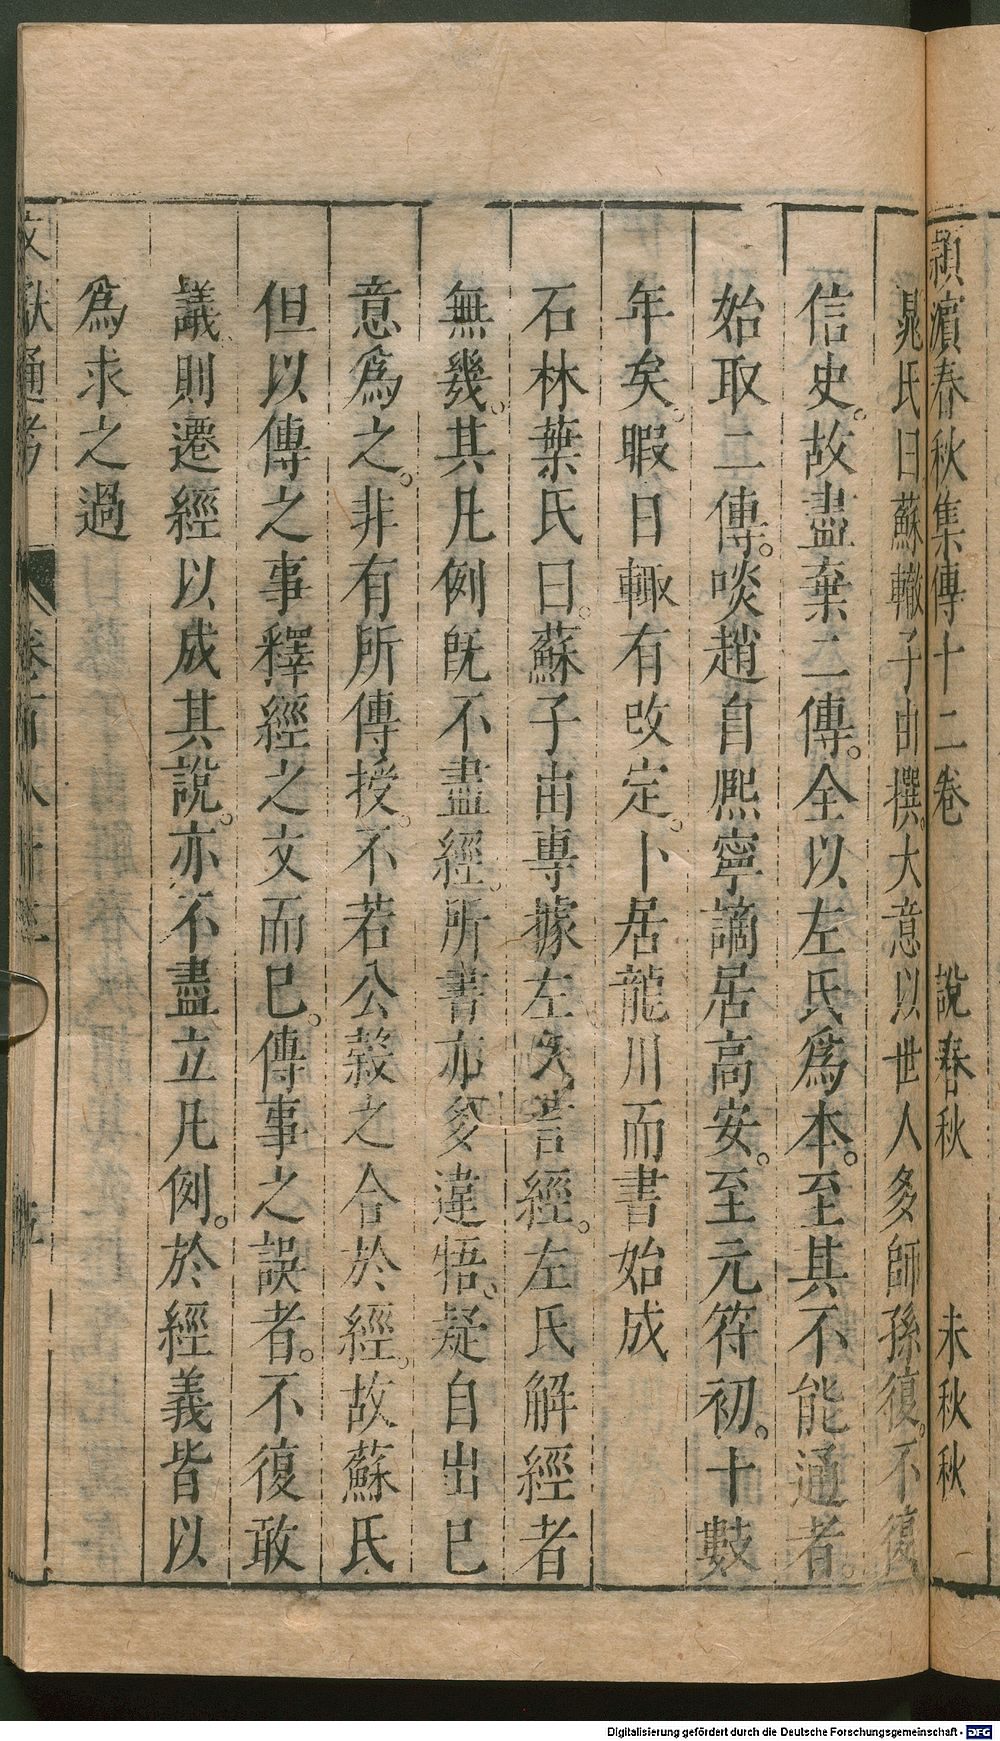 頴濱春秋集傳十二卷
說春秋
未秋秋
晁氏曰蘇轍子由撰。大意以世人多師孫復。不復
信史。故盡棄二傳。全以左氏爲本。至其不能通者。
始取二傳。啖趙自熈寧謫居高安。至元符初。十數
年矣。暇日輙有改定。卜居龍川而書始成
石林葉氏曰。蘇子由專據左氏言經。左氏解經者
無幾。其凡例旣不盡經。所書亦多違悟。疑自出已
意爲之。非有所傳授。不若公榖之合於經。故蘇氏
但以傳之事釋經之文而已。傳事之誤者。不復敢
議則遷經以成其說。亦不盡立凡例。於經義皆以
爲求之過
文獻通考
卷百八十三
Digitalisierung gefördert durch die Deutsche Forschungsgemeinschaft - DFG